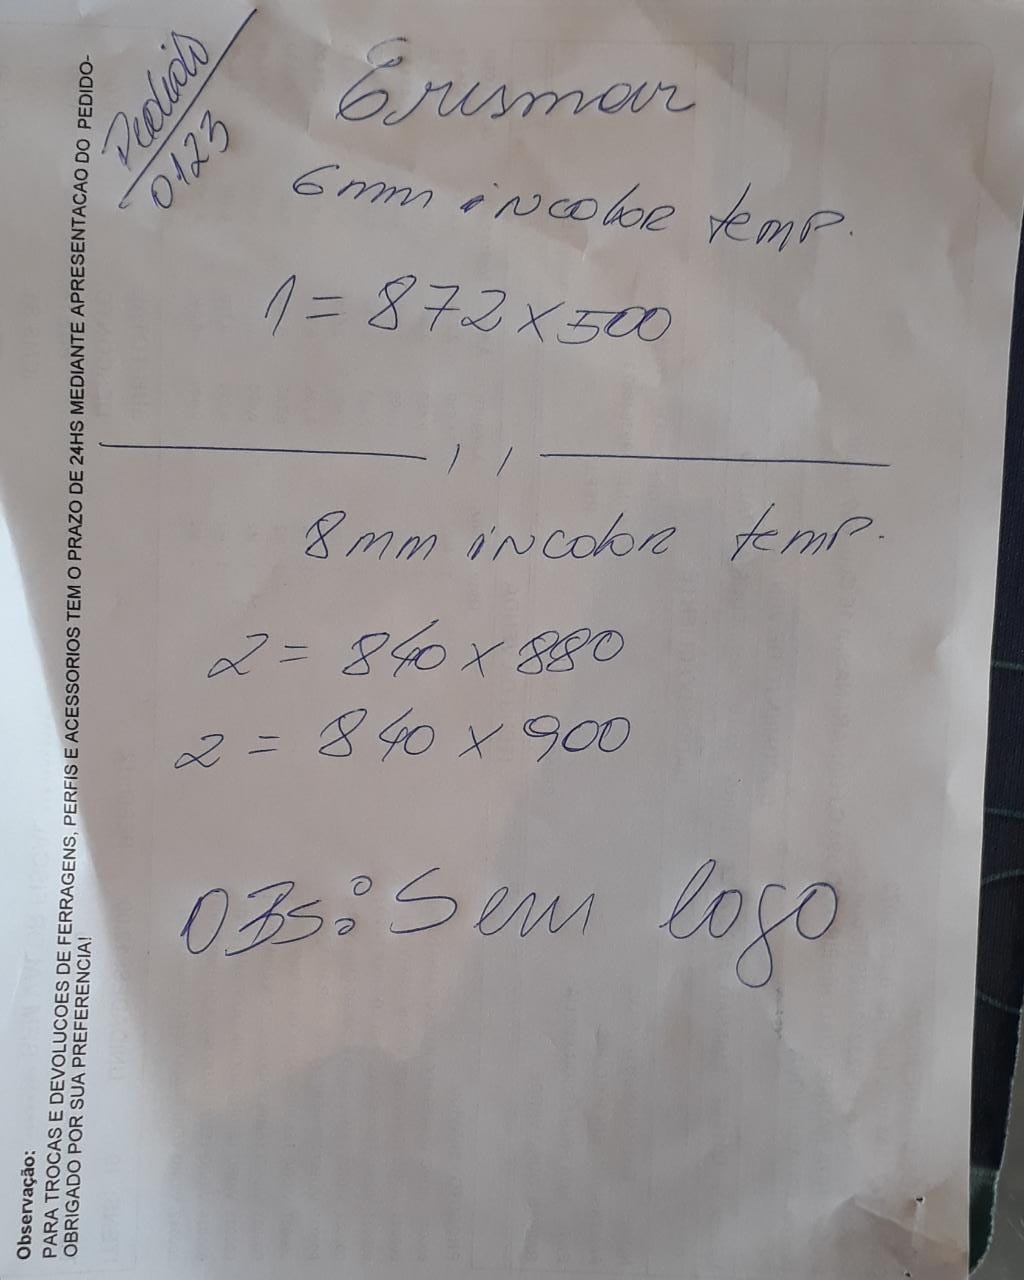 Pedido
0123
Erismar
6mm incolor temp.
1 = 872 x 500
8mm incolor temp.
2 = 840 x 880
2 = 840 x 900
OBS: Sem logo
Observação:
PARA TROCAS E DEVOLUCOES DE FERRAGENS, PERFIS E ACESSORIOS TEM O PRAZO DE 24HS MEDIANTE APRESENTACAO DO PEDIDO-
OBRIGADO POR SUA PREFERENCIA!